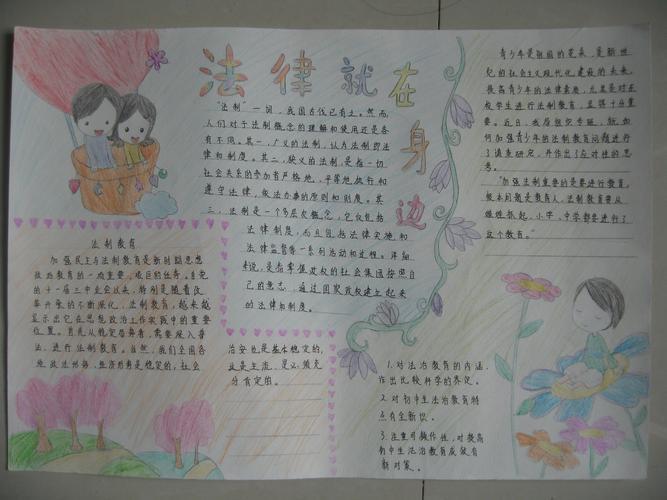 法律就在身边
"法制"一词，我国古代已有之。然而，
人们对于法制概念的理解和使用还是各
有不同。其一，广义的法制，认为法制即法
律和制度。其二，狭义的法制，是指一切
社会关系的参加者严格地、平等地执行和
遵守法律，依法办事的原则和制度。其
三，法制是一个多层次概念，它不仅包括
法律制度，而且包括法律实施和
法律监督等一系列活动和过程。详细
来说，是指掌握政权的社会集团按照自
己的意志，通过国家政权建立起来
的法律和制度。
法制教育
加强民主与法制教育是新时期思想
政治教育的一项重要、艰巨的任务。自党
的十一届三中全会以来，特别是随着改
革开放的不断深化，法制教育，越来越
显示出它在思想政治工作实践中的重要
位置。首先从稳定治鲁看，需要深入普
法，进行法制教育。当然，我们全国各
地政法形势，经济形势是稳定的，社会
治安也是基本稳定的，
这是主流，是必须充
分肯定的。
青少年是祖国的花朵，是新世
纪的社会主义现代化建设的未来。
提高青少年的法律素质，尤其是对在
校学生进行法制教育，显得十分重
要。近日，我局组织专班，就如
何加强青少年的法制教育问题进行
了调查研究，并作出了应对性的思
考。
"加强法制重要的是要进行教育，
根本问题是教育人，法制教育要从
娃娃抓起，小学、中学都要进行了
这个教育。"
1.对法治教育的内涵
作出比较科学的界定。
2.对初中生法治教育特
点有全新识。
3.注重可操作性，对提高
初中生法治教育成效有
新对策。